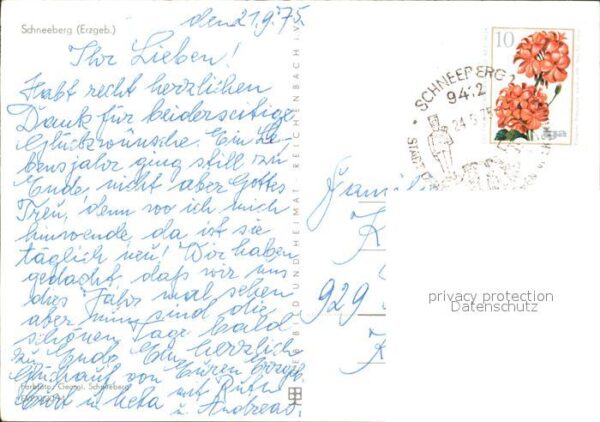 Schneeberg (Erzgeb.)
den 21.9.75.
Ihr Lieben!
Habt recht herzlichen
Dank für beiderseitige
Glückwünsche. Ein Le-
bensjahr ging still zu
Ende, nicht aber Gottes
Treu, denn wo ich mich
hinwende, da ist sie
täglich neu! Wir haben
gedacht, daß wir uns
dies Jahr mal sehen
aber nun sind die
schönen Tage bald
zu Ende. Ein herzliche
Glückauf von Euren Erzge
mit Ruth
u. Andreas
Farbfoto: Schneeberg
BILD UND HEIMAT REICHENBACH
10
SCHNEEBERG 1
942
Famili
K
929
K
privacy protection
Datenschutz